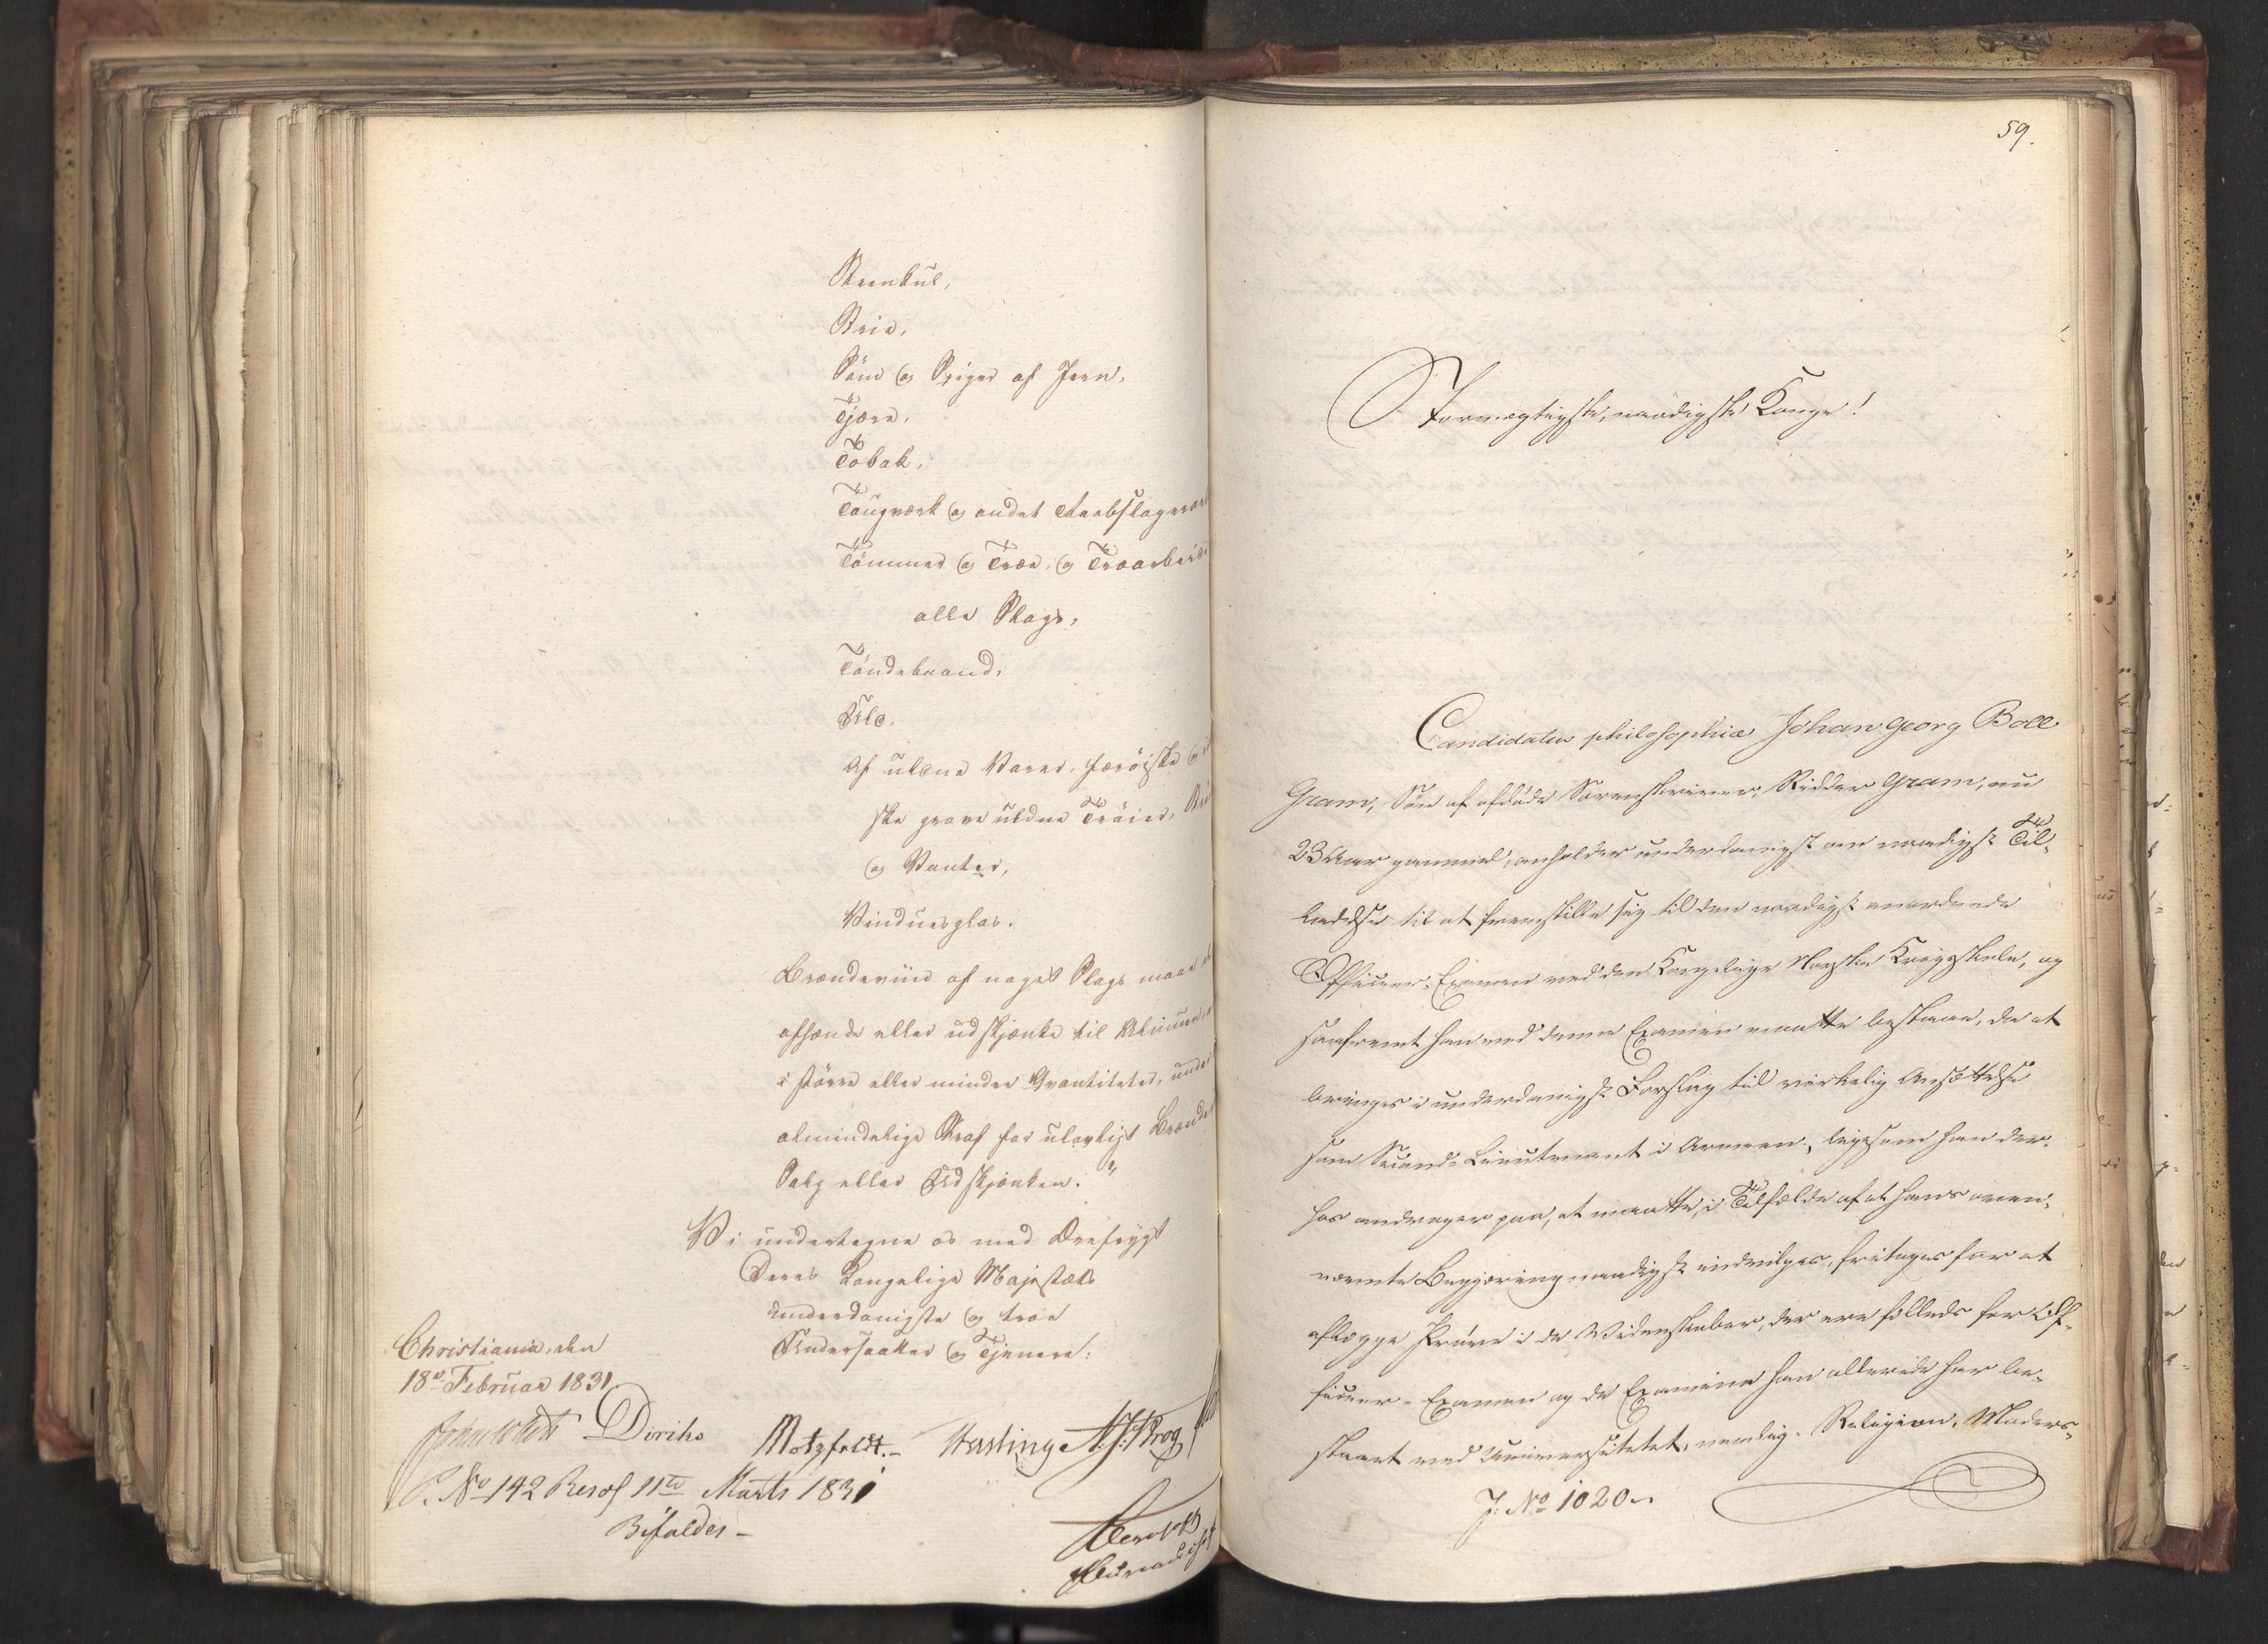 Steenkul,
Stivelse,
Söm og Spiger af Jern,
Tjære,
Tobak,
Tougværk og andet Reebslager
Tömmer og Træe, og Træarbeid
alle Slags,
Töndebaand,
Uld,
Af uldne Varer, færöiske og
ske grove uldne Tröier,
og Vanter,
Vinduesglas.
Brændeviin af noget Slags maae
afhænde eller udskjænke til Almuen,
i större eller mindre Qvantiteter, under
almindelige Straf for ulovligt Brænde
Salg eller Udskjænken."
Vi undertegne os med Ærefrygt
Deres Kongelige Majestæts
underdanigste og troe
Undersaatter og Tjenere:
Christiania, den
18de Februar 1831.
Diriks Motzfeldt.- Fasting Krog
P. No 142 Resol 11te Marts 1831
Bifaldes -
59.
Stormægtigste, naadigste Konge!
Candidatus philosophiæ Johan Georg Boll
Gram, Sön af afdöde Sorenskriver, Ridder Gram, nu
23 Aar gammel, anholder underdanigst om naadigst Til-
ladelse til at fremstille sig til den naadigst anordnede
Officeer-Examen ved den Kongelige Norske Krigsskole, og
saafremt han ved denne Examen maatte bestaae, da at
bringes i underdanigst Forslag til virkelig Ansættelse
som Second-Lieutenant i Armeen, ligesom han der-
hos andrager paa, at maatte, i Tilfælde af at hans oven-
nævnte Begjæring naadigst indvilges, fritages for at
aflægge Pröve i de Videnskaber, der ere fælleds for Of-
ficeer-Examen og de Examina han allerede har be-
staaet ved Universitetet, nemlig: Religion, Moders-
J: No 1020.